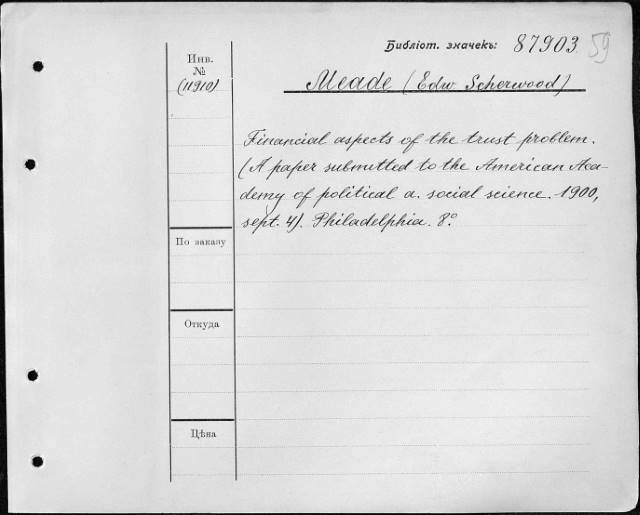 Библіот. значекъ: 87903 59
Инв.
№
(11910)
Meade (Edw Scherwood)
Financial aspects of the trust problem.
(A paper submitted to the American Aca-
demy of political a. social science. 1900,
sept. 4). Philadelphia. 8°.
По заказу
Откуда
Цѣна